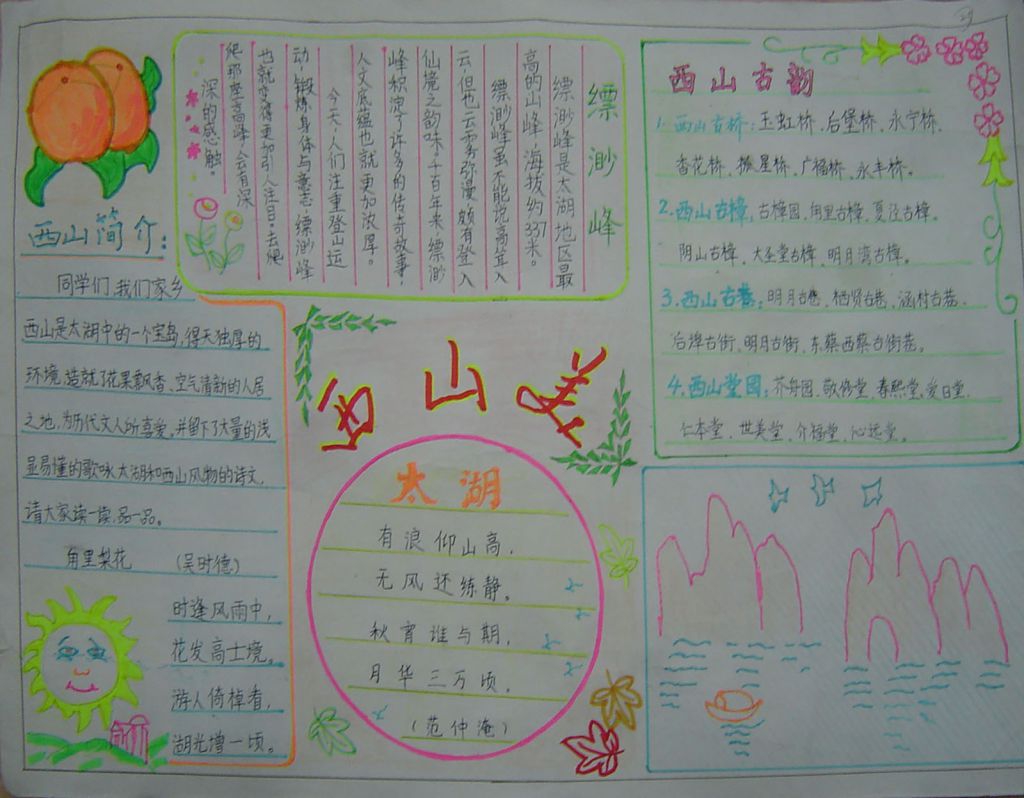 西山美
西山简介:
同学们,我们家乡
西山是太湖中的一个宝岛,得天独厚的
环境,造就了花果飘香、空气清新的人居
之地,为历代文人所喜爱,并留下了大量的浅
显易懂的歌咏太湖和西山风物的诗文,
请大家读一读,品一品。
甪里梨花 (吴时德)
时逢风雨中,
花发高士境。
游人倚棹看,
湖光增一顷。
缥渺峰
缥渺峰是太湖地区最
高的山峰,海拔约337米。
缥渺峰虽不能说高耸入
云,但也云雾弥漫,颇有登入
仙境之韵味。千百年来,缥渺
峰积淀了许多的传奇故事,
人文底蕴也就更加浓厚。
今天,人们注重登山运
动,锻炼身体与意志,缥渺峰
也就变得更加引人注目。去爬
爬那座高峰,会有深
深的感触。
太湖
有浪仰山高,
无风还练静。
秋宵谁与期,
月华三万顷。
(范仲淹)
西山古韵
1.西山古桥:玉虹桥、后堡桥、永宁桥、
杏花桥、振星桥、广福桥、永丰桥。
2.西山古樟:古樟园、甪里古樟、夏泾古樟、
阴山古樟、大圣堂古樟、明月湾古樟。
3.西山古巷:明月古巷、栖贤古巷、涵村古巷、
后埠古街、明月古街、东蔡西蔡古街巷。
4.西山堂园:芥舟园、敬修堂、春熙堂、爱日堂、
仁本堂、世美堂、介福堂、沁远堂。